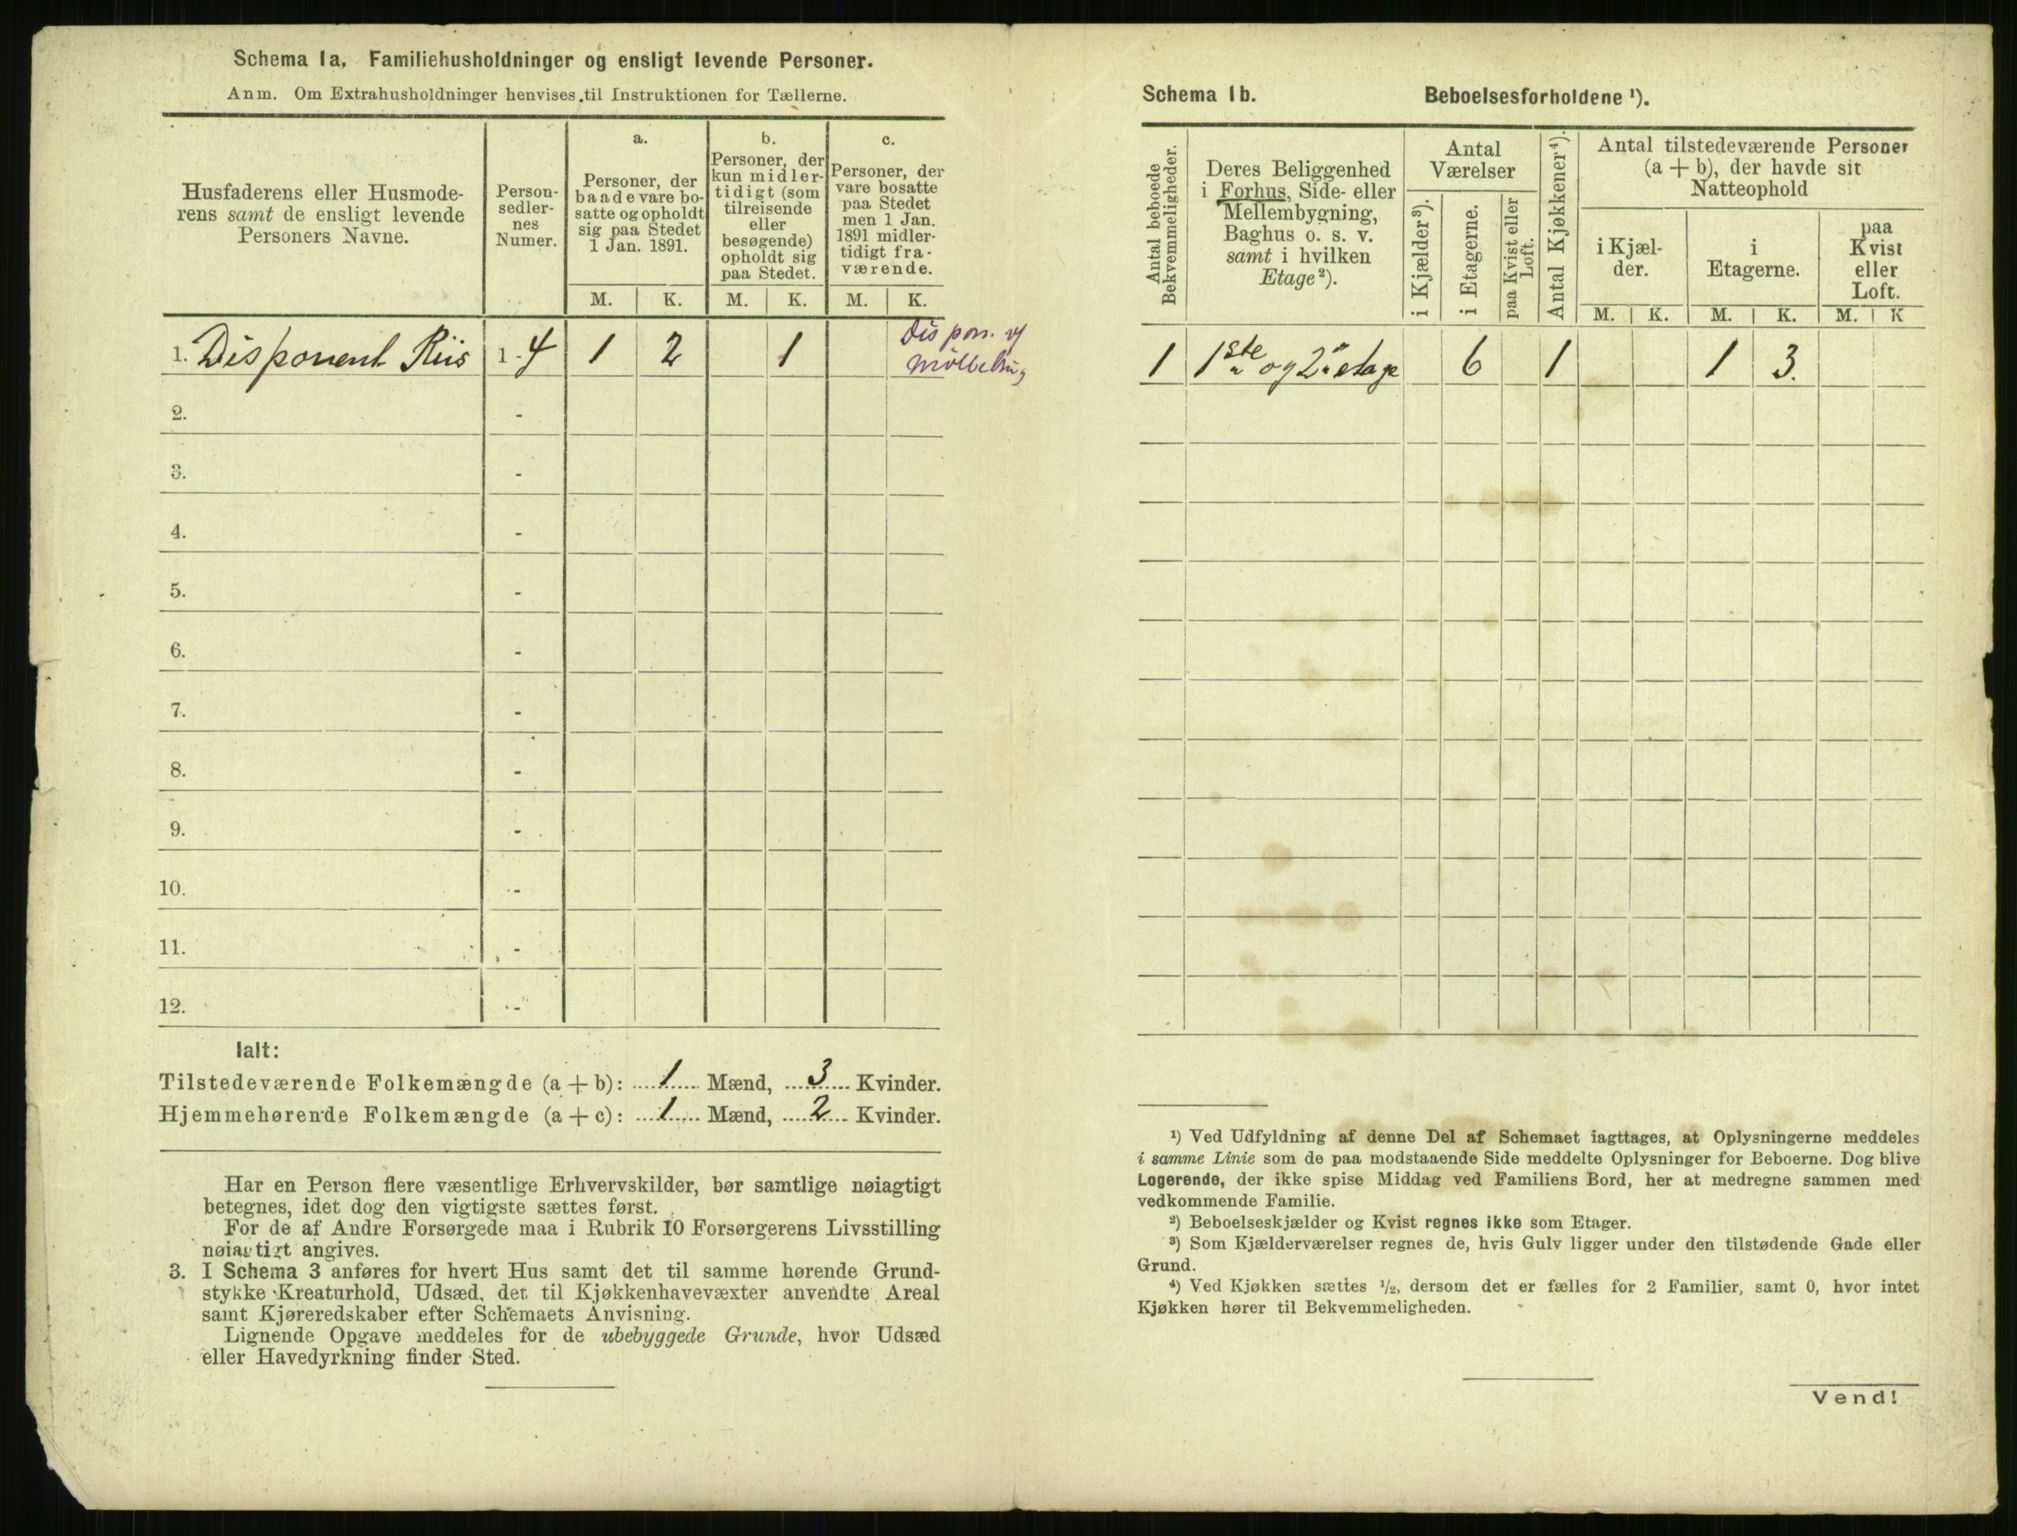 Schema 1a. Familiehusholdninger og ensligt levende Personer.
Anm. Om Extrahusholdninger henvises til Instruktionen for Tællerne.
Husfaderens eller Husmode-
rens samt de ensligt levende
Personers Navne.
Person-
sedler-
nes
Numer.
a.
Personer, der
baade vare bo-
satte og opholdt
sig paa Stedet
1 Jan. 1891.
M. K.
b.
Personer, der
kun midler-
tidigt (som
tilreisende
eller
besøgende)
opholdt sig
paa Stedet.
M. K.
c.
Personer, der
vare bosatte
paa Stedet
men 1 Jan.
1891 midler-
tidigt fra-
værende.
M. K.
1. Disponent Riis 1 - 4 1 2 1
Dispon.
2. -
3. -
4. -
5. -
6. -
7. -
8. -
9. -
10. -
11. -
12. -
Ialt:
Tilstedeværende Folkemængde (a + b): 1 Mænd, 3 Kvinder.
Hjemmehørende Folkemængde (a + c): 1 Mænd, 2 Kvinder.
Har en Person flere væsentlige Erhvervskilder, bør samtlige nøiagtigt
betegnes, idet dog den vigtigste sættes først.
For de af Andre Forsørgede maa i Rubrik 10 Forsørgerens Livsstilling
nøiagtigt angives.
3. I Schema 3 anføres for hvert Hus samt det til samme hørende Grund-
stykke Kreaturhold, Udsæd, det til Kjøkkenhavevæxter anvendte Areal
samt Kjøreredskaber efter Schemaets Anvisning.
Lignende Opgave meddeles for de ubebyggede Grunde, hvor Udsæd
eller Havedyrkning finder Sted.
Schema 1b. Beboelsesforholdene ¹).
Antal beboede
Bekvemmeligheder.
Deres Beliggenhed
i Forhus, Side- eller
Mellembygning,
Baghus o. s. v.
samt i hvilken
Etage ²).
Antal
Værelser
i Kjælder ³).
i Etagerne.
paa Kvist eller
Loft.
Antal Kjøkkener ⁴).
Antal tilstedeværende Personer
(a + b), der havde sit
Natteophold
i Kjæl-
der.
M. K.
i
Etagerne.
M. K.
paa
Kvist
eller
Loft.
M. K
1 1ste og 2n etage 6 1 1 3.
¹) Ved Udfyldning af denne Del af Schemaet iagttages, at Oplysningerne meddeles
i samme Linie som de paa modstaaende Side meddelte Oplysninger for Beboerne. Dog blive
Logerende, der ikke spise Middag ved Familiens Bord, her at medregne sammen med
vedkommende Familie.
²) Beboelseskjælder og Kvist regnes ikke som Etager.
³) Som Kjælderværelser regnes de, hvis Gulv ligger under den tilstødende Gade eller
Grund.
⁴) Ved Kjøkken sættes ½, dersom det er fælles for 2 Familier, samt 0, hvor intet
Kjøkken hører til Bekvemmeligheden.
Vend!